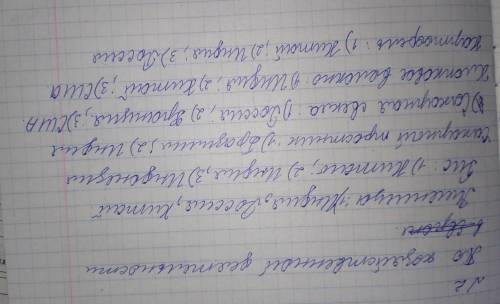 12
По хозяйственной деятельности
Пшеница: Индия, Россия, Китай
Рис 1) Китай, 2) Индия, 3) Индонезия
Сахарный тростник 1) Бразилия; 2) Индия
Сахарная свекла: 1) Россия, 2) Франция, 3) США.
Хлопковое волокно 1) Индия; 2) Китай; 3) США
Картофель: 1) Китай; 2) Индия; 3) Россия